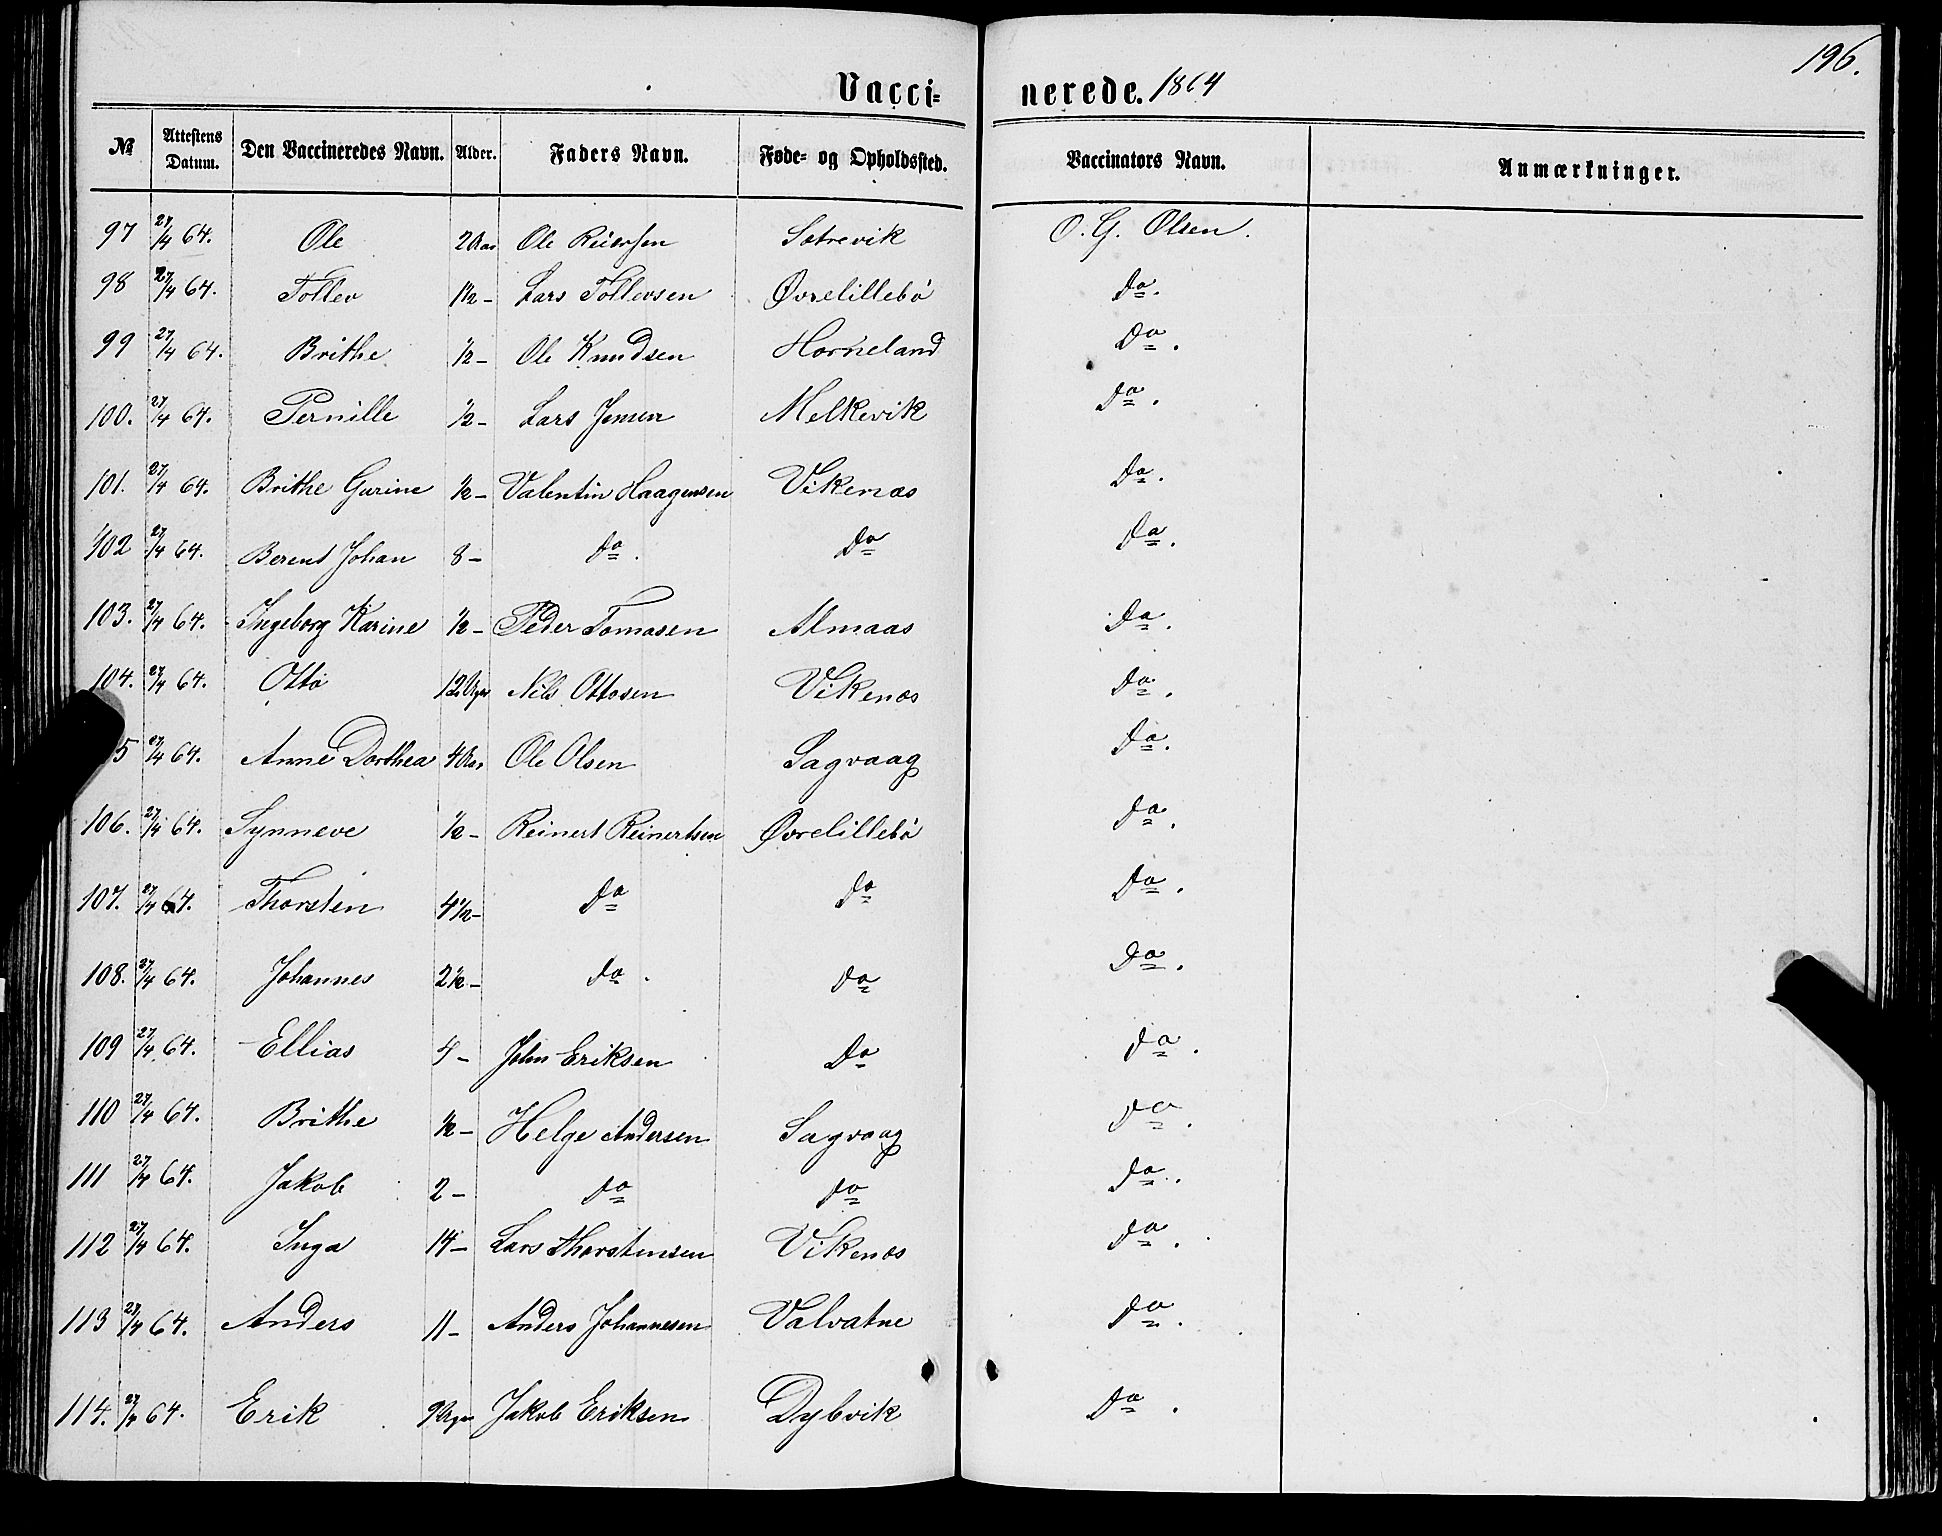 196.
Vacci= nerede. 1864
№ Attestens Datum. Den Vaccineredes Navn. Alder. Faders Navn. Føde- og Opholdssted. Vaccinators Navn. Anmærkninger.
97 27/4 64. Ole 2 Aar Ole Sætrevik O. G. Olsen.
98 27/4 64. Tollev 1½ - Lars Tollevsen Øvrelillebø Do.
99 27/4 64. Brithe ½ - Ole Knudsen Horneland Do.
100. 27/4 64. Pernille ½ - Lars Jensen Melkevik Do.
101. 27/4 64. Brithe Gurine ½ - Valentin Haagensen Vikenæs Do.
102 27/4 64. Berent Johan 8 - Do. Do Do.
103. 27/4 64. Ingeborg Karine ½ - Peder Tomasen Almaas Do.
104. 27/4 64. Otto 12 Uger Nils Ottosen Vikenæs Do.
5 27/4 64. Anne Dorthea 4 Aar Ole Olsen Sagvaag Do.
106. 27/4 64. Synneve ½ - Reinert Reinertsen Øvrelillebø Do.
107. 27/4 64. Thorsten 4½ - Do Do Do.
108. 27/4 64. Johannes 2½ - Do. Do Do.
109 27/4 64. Ellias 4 - John Eriksen Do Do.
110 27/4 64. Brithe ½ - Helge Andersen Sagvaag Do.
111 27/4 64. Jakob 2 - Do Do Do.
112 27/4 64. Inga 14 - Lars Thorstensen Vikenæs Do.
113 27/4 64. Anders 11 - Anders Johannesen Valvatne Do.
114. 27/4 64. Erik 9 Uger Jakob Eriksen Dybvik Do.